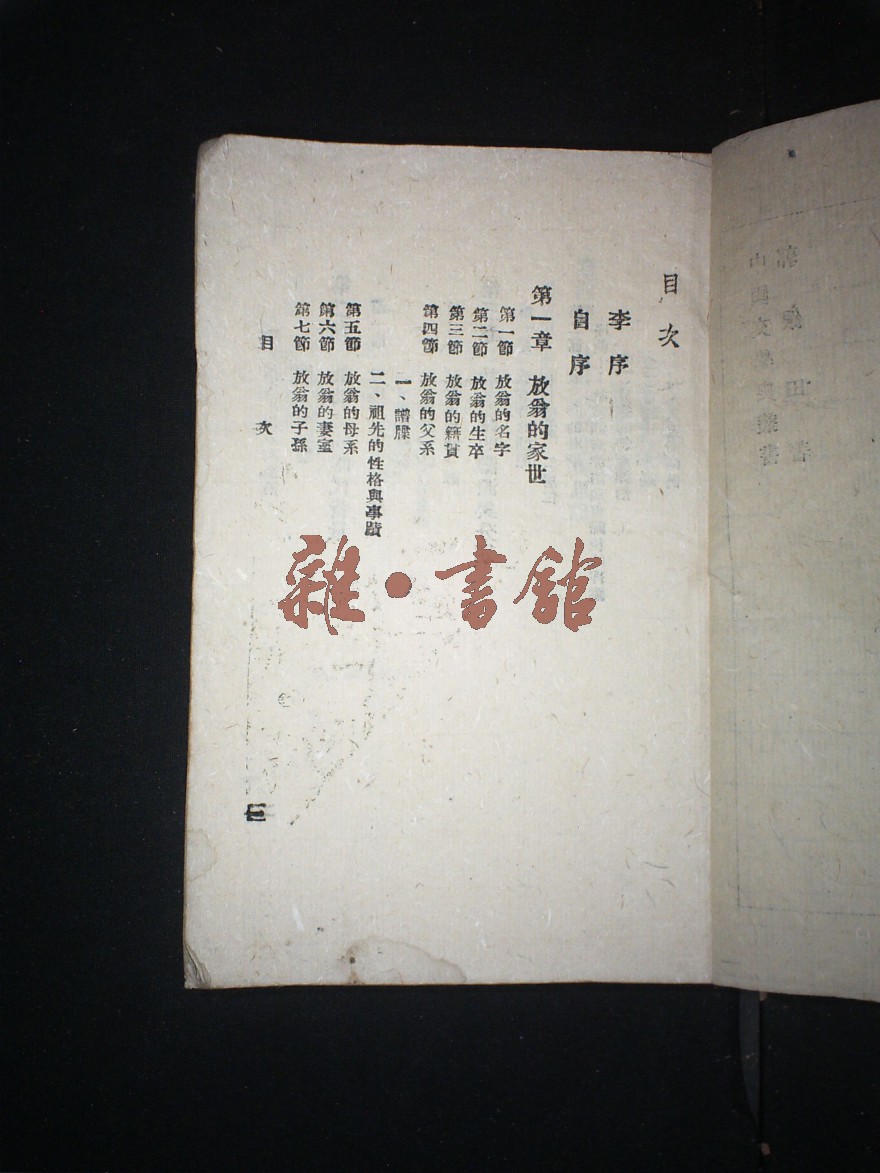 目次
李序
自序
第一章 放翁的家世
第一節 放翁的名字
第二節 放翁的生卒
第三節 放翁的籍貫
第四節 放翁的父系
一、譜牒
二、祖先的性格與事蹟
第五節 放翁的母系
第六節 放翁的妻室
第七節 放翁的子孫
目次
雜·書館